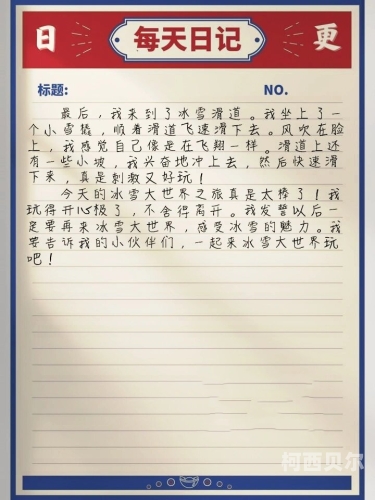 日 每天日记 更
标题: NO.
最后，我来到了冰雪滑道。我坐上了一
个小雪撬，顺着滑道飞速滑下去。风吹在脸
上，我感觉自己像是在飞翔一样。滑道上还
有一些小坡，我兴奋地冲上去，然后快速滑
下来，真是刺激又好玩！
今天的冰雪大世界之旅真是太棒了！我
玩得开心极了，不舍得离开。我发誓以后一
定要再来冰雪大世界，感受冰雪的魅力。我
要告诉我的小伙伴们，一起来冰雪大世界玩
吧！
柯西贝尔